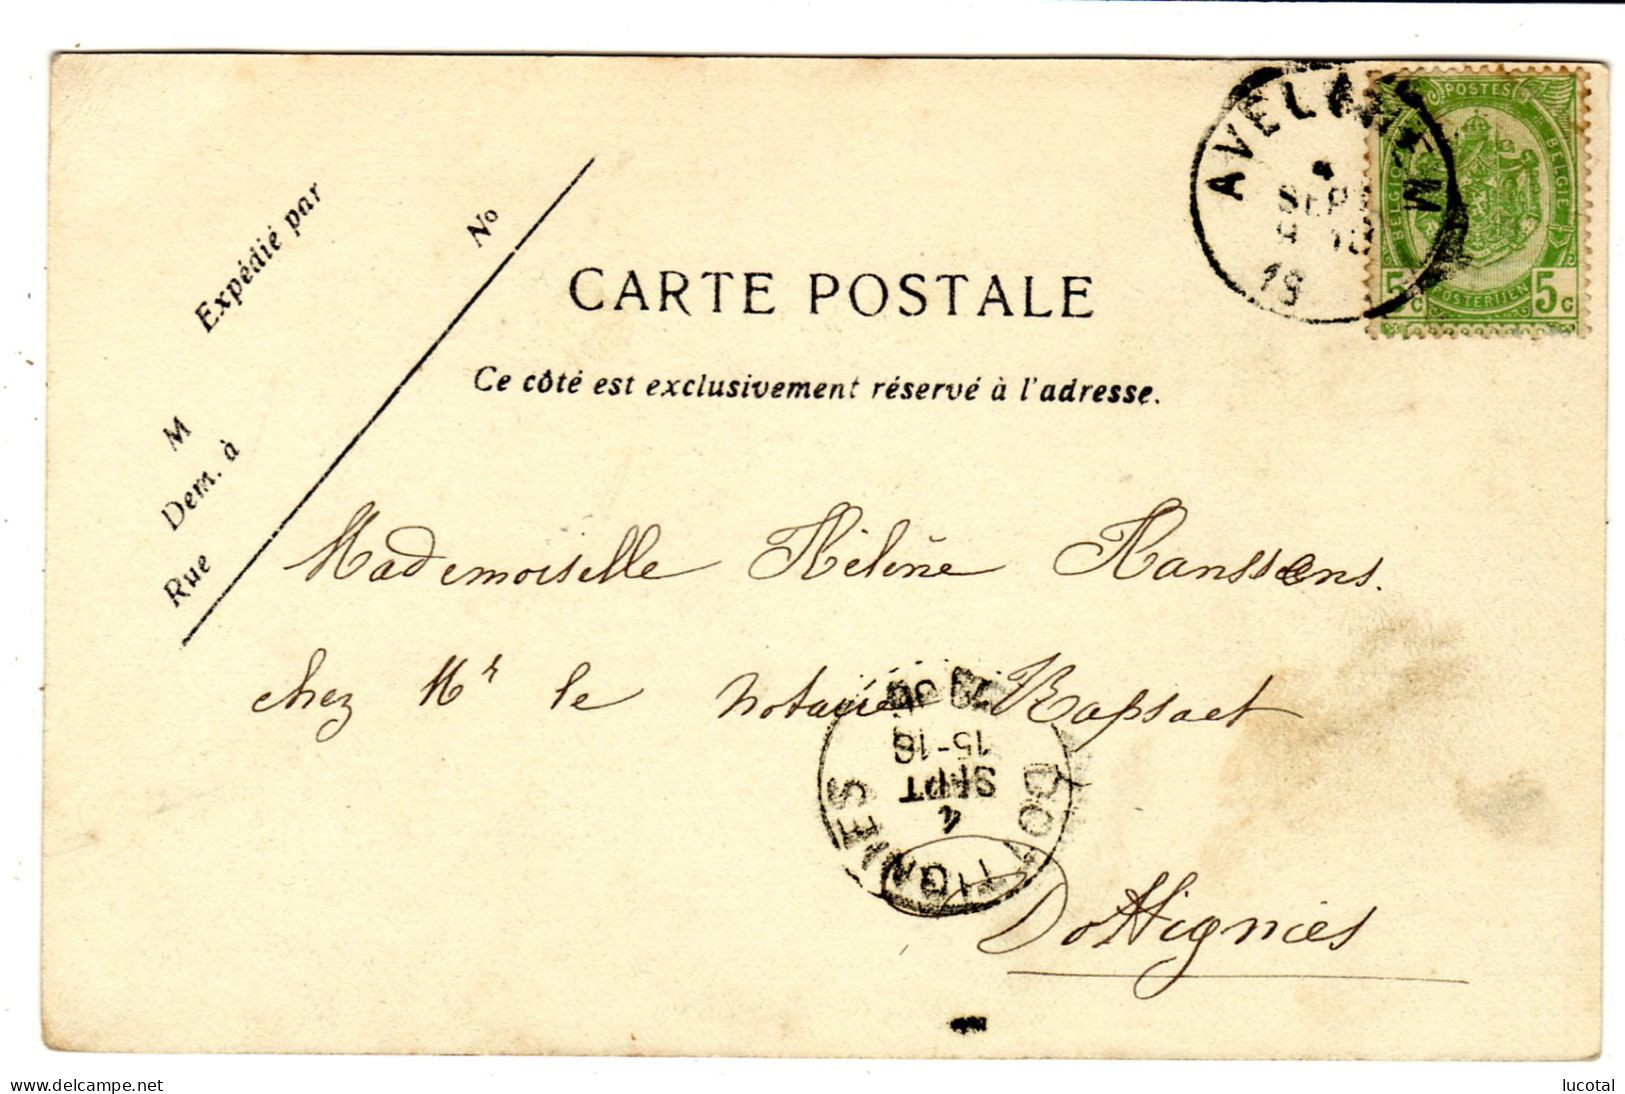 POSTES
BELGIQUE
BELGIE
POSTERIJEN
5 c
5 c
AVELGHEM
SEPT
19
Expédié par
No
CARTE POSTALE
Ce côté est exclusivement réservé à l'adresse.
M
Dem. à
Rue
Mademoiselle Hélène Hanssens.
chez Mr le notaire Rapsaet
DOTTIGNIES
4
SEPT
15-16
Dottignies
www.delcampe.net
lucotal